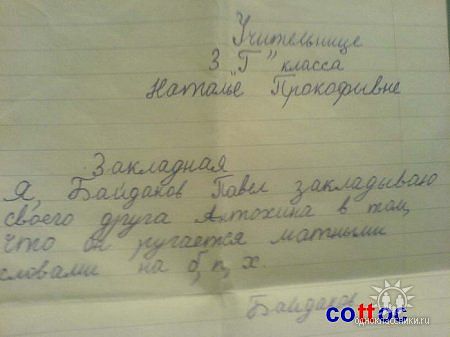 Учительнице
3 "Г" класса
Наталье Прокофывне
Закладная
Я, Байдаков Павел закладываю
своего друга Антохина в том,
что он ругается матными
словами на б, п, х.
Байдаков
cottoc
одноклассники.ru